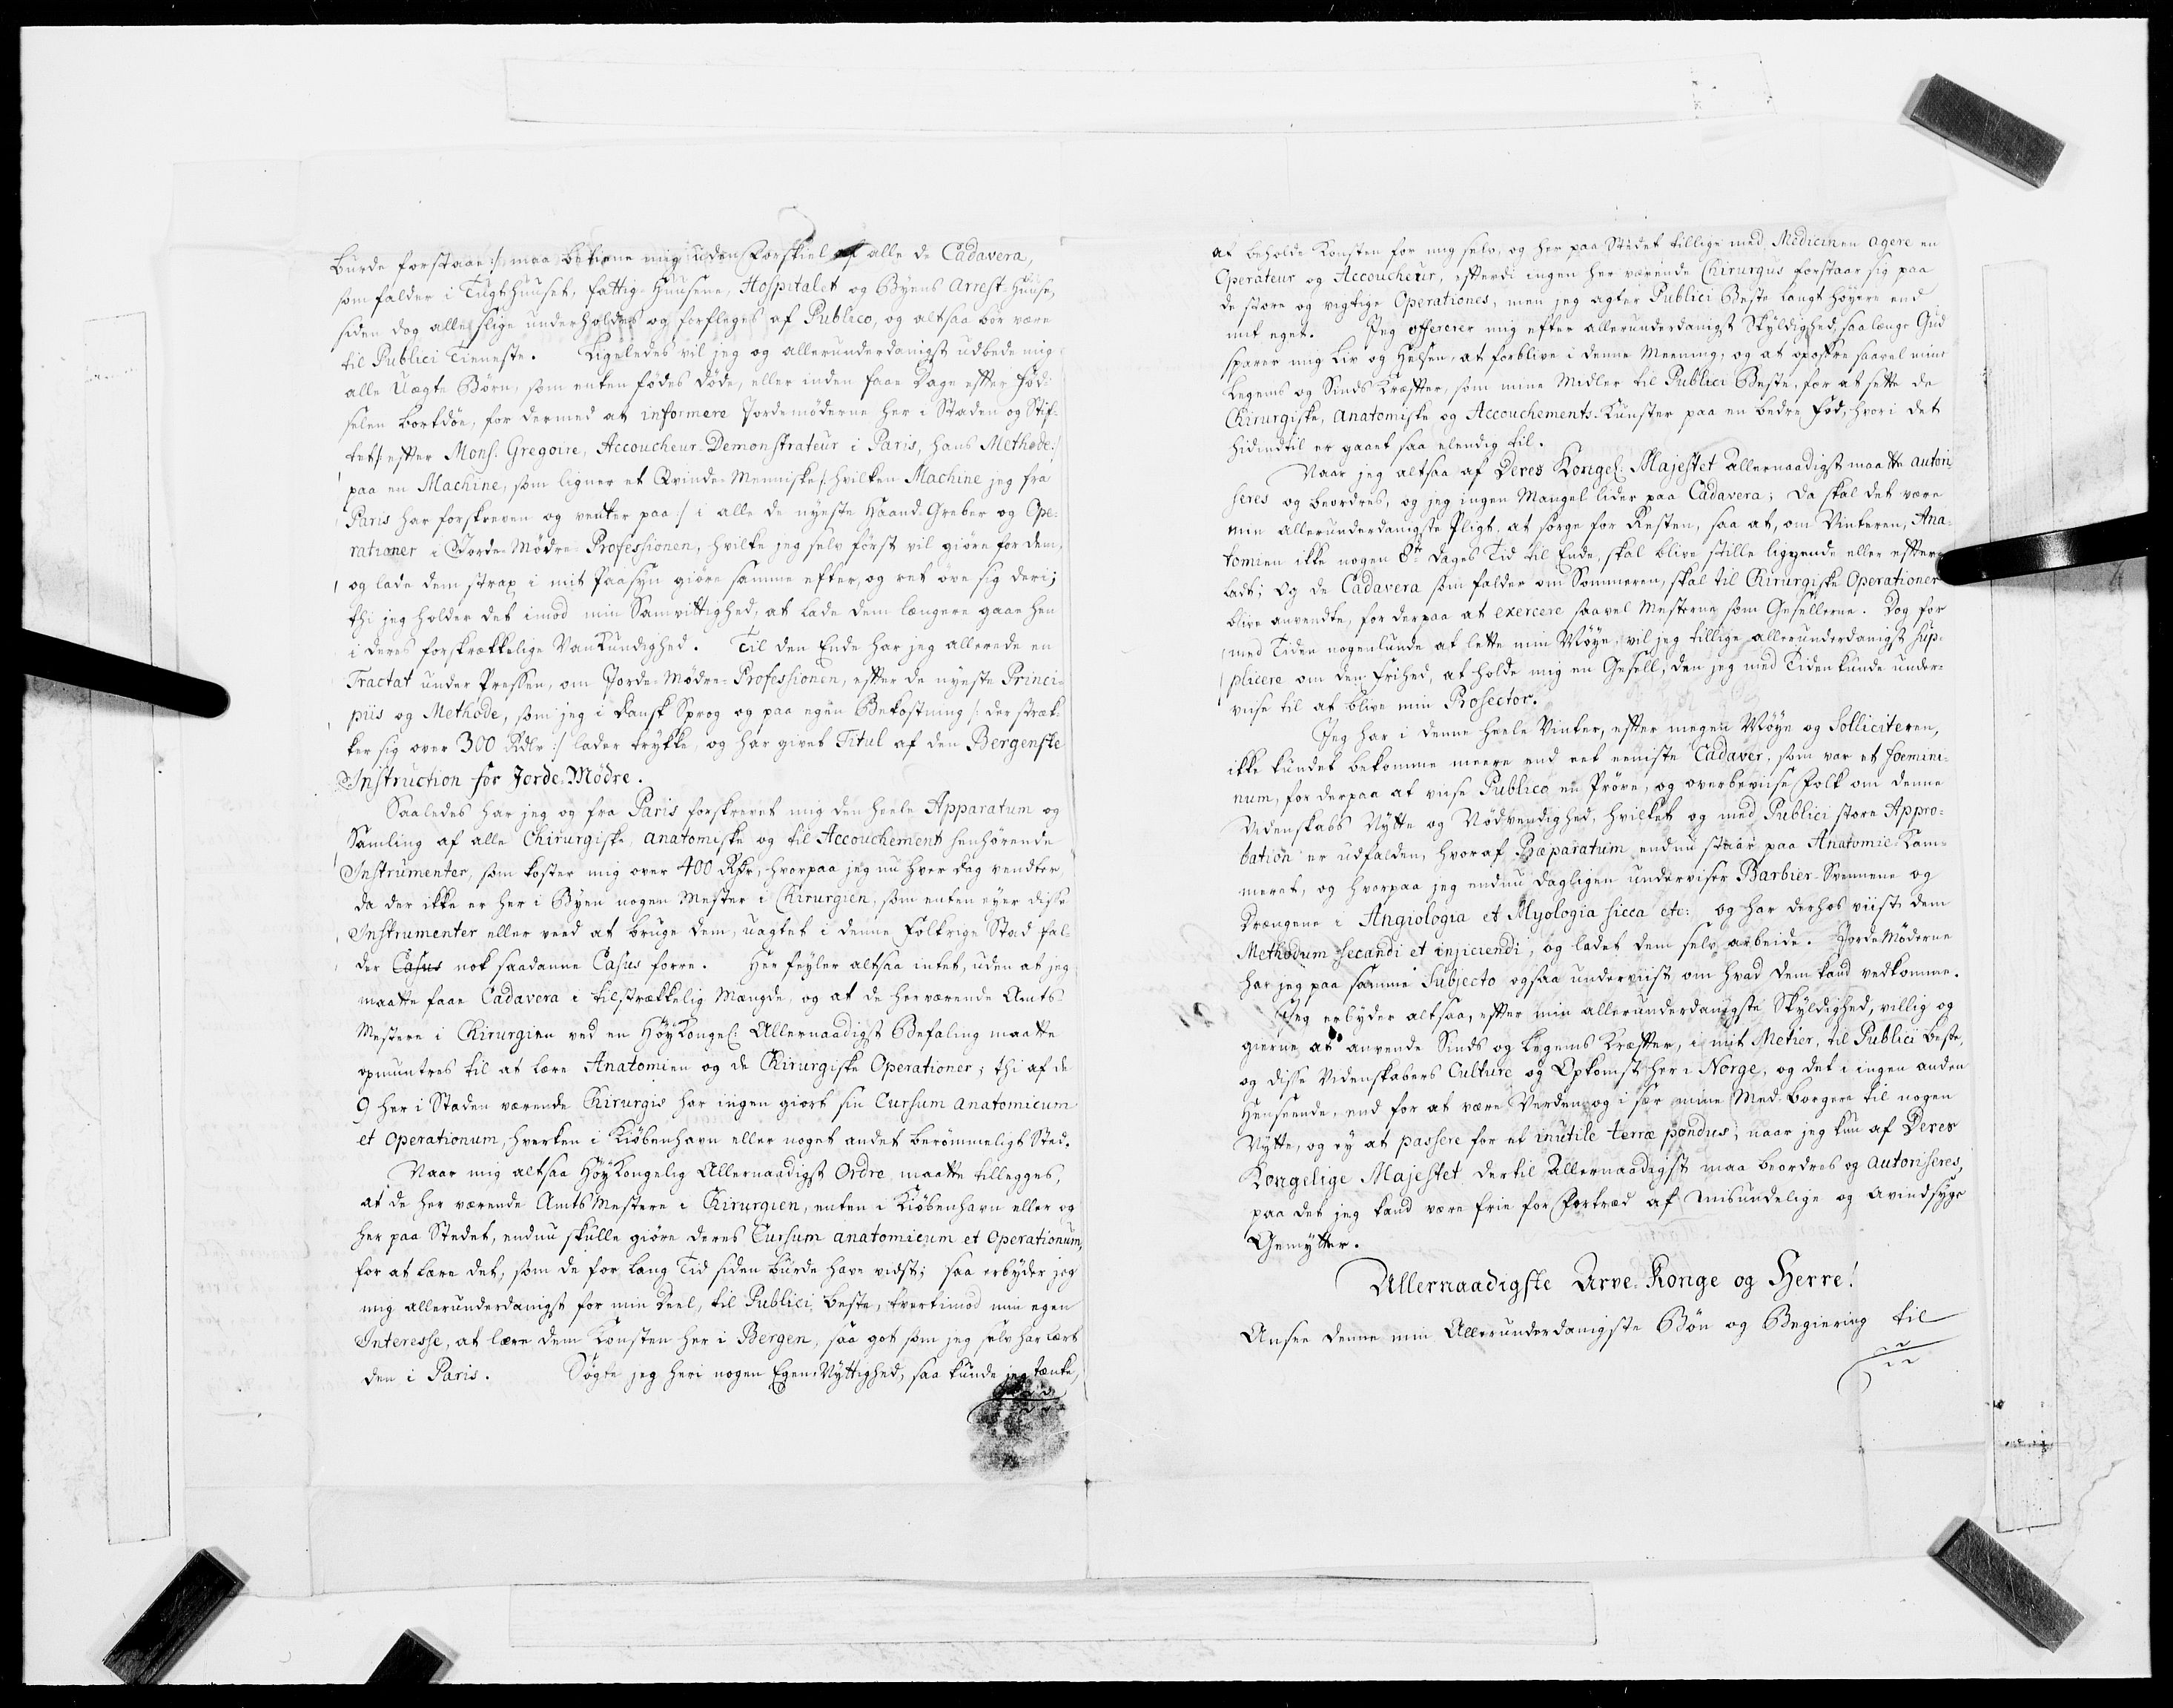 burde forstaae :/ maa betiene mig uden Forskiel af alle de Cadavera,
som falder i Tugthuuset, fattig-Huusene, Hospitalet og Byens Arrest-Huuse,
siden dog alle slige underholdes og forfleges af Publico, og altsaa bør være
til Publici Tieneste. Ligeledes vil jeg og allerunderdanigst udbede mig
alle Uægte Børn, som enten fødes døde, eller inden faae Dage effter Fød-
selen bortdøe, for dermed at informere Jordemøderne her i Staden og Stif-
tet /: effter Mons. Gregoire, Accoucheur-Demonstrateur i Paris, hans Methode :/
paa en Machine, som ligner et Qvinde-Menniske /: hvilken Machine jeg fra
Paris har forskreven og venter paa :/ i alle de nyeste Haand-Greber og Ope-
rationer i Jorde-Mødre-Professionen, hvilke jeg selv først vil giøre for dem,
og lade dem strax i mit Paasyn giøre samme efter, og ret øve sig deri;
thi jeg holder det imod min Samvittighed, at lade dem længere gaae hen
i deres forskrækkelige VanKundighed. Til den Ende har jeg allerede en
Tractat under Pressen, om Jorde-Mødre-Professionen, effter de nyeste Princi-
piis og Methode, som jeg i dansk Sprog og paa egen Bekostning /: der stræk-
ker sig over 300 Rdlr :/ lader trykke, og har givet Titul af den Bergenske
Instruction for Jorde-Mødre.
Saaledes har jeg og fra Paris forskrevet mig den heele Apparatum og
Samling af alle Chirurgiske, anatomiske og til Accouchement henhørende
Instrumenter, som koster mig over 400 Rdlr, hvorpaa jeg nu hver dag vendter,
da der ikke er her i Byen nogen Mester i Chirurgien, som enten eyer disse
Instrumenter eller veed at bruge dem, uagtet i denne Folkrige Stad fal-
der Casus nok saadanne Casus forre. Her feyler altsaa intet, uden at jeg
maatte faae Cadavera i tilstrækkelig Mængde, og at de herværende Amts-
Mestere i Chirurgien ved en HøyKongel: Allernaadigst Befaling maatte
opmuntres til at lære Anatomien og de Chirurgiske Operationer; thi af de
9 her i Staden værende Chirurgis har ingen giort sin Cursum anatomicum
et Operationum, hverken i Kiøbenhavn eller noget andet berømmeligt Sted.
Naar mig altsaa HøyKongelig Allernaadigst Ordre maatte tillegges,
at de her værende Amts Mestere i Chirurgien, enten i Kiøbenhavn eller og
her paa Stedet, endnu skulle giøre deres Cursum anatomicum et Operationum,
for at lære det, som de for lang Tid siden burde have vidst; saa erbyder jeg
mig allerunderdanigst for min Deel, til Publici beste, tvertimod min egen
Interesse, at lære dem Konsten her i Bergen, saa got som jeg selv har lært
den i Paris. Søgte jeg heri nogen Egen-Nyttighed, saa kunde jeg tænke,
at beholde Konsten for mig selv, og her paa Stedet tillige med Medicinen agere en
Operateur og Accoucheur, effterdi ingen her værende Chirurgus forstaar sig paa
de store og vigtige Operationes, men jeg agter Publici Beste langt høyere end
mit eget. Jeg offererer mig efter allerunderdanigst Skyldighed, saa længe Gud
sparer mig Liv og Helsen, at forblive i denne Meening, og at opoffre saavel mine
Legems og Sinds Kræffter, som mine Midler til Publici Beste, for at sette de
Chirurgiske, Anatomiske og Accouchements-Kunster paa en bedre Fod, hvori det
hidindtil er gaaet saa elendig til.
Naar jeg altsaa af Deres Kongel: Majestet Allernaadigst maatte autori-
seres og beordres, og jeg ingen Mangel lider paa Cadavera; da skal det være
min allerunderdanigste Pligt, at sørge for Resten, saa at, om Vinteren, Ana-
tomien ikke nogen 8te dages Tid til Ende, skal blive stille liggende eller effter-
ladt; Og de Cadavera som falder om Sommeren, skal til Chirurgiske Operationer
blive anvendte, for derpaa at exercere saavel Mesterne som Gesellerne. Dog for
med Tiden nogenlunde at lette min Møye, vil jeg tillige allerunderdanigst sup-
plicere om den Frihed, at holde mig en Gesell, den jeg med Tiden kunde under-
viise til at blive min Prosector.
Jeg har i denne heele Vinter, effter megen Møye og Solliciteren,
ikke kundet bekomme meere end eet eeniste Cadaver, som var et foemini-
num, for derpaa at viise Publico en Prøve, og overbeviise Folk om denne
Videnskabs Nytte og Nødvendighed, hvilket og med Publici store Appro-
bation er udfalden, hvoraf Præparatum endnu staar paa Anatomie-Kam-
meret, og hvorpaa jeg endnu dagligen underviser Barbier-Svennene og
Drængene i Angiologia et Myologia sicca etc: og har derhos viist dem
Methodum secandi et injiciendi, og ladet dem selv arbeide. JordeMøderne
har jeg paa samme Subjecto ogsaa underviist om hvad dem kand vedkomme.
Jeg erbyder altsaa, effter min allerunderdanigste Skyldighed, villig og
gierne at anvende Sinds og Legems Kræffter, i mit Metier, til Publici beste,
og disse Videnskabers Culture og Opkomst her i Norge, og det i ingen anden
Henseende, end for at være Verden og i sær mine Med-borgere til nogen
Nytte, og ey at passere for et inutile terræ pondus; naar jeg kun af Deres
Kongelige Majestet dertil Allernaadigst maa beordres og autoriseres,
paa det jeg kand være frie for Fortræd af misundelige og avindsyge
Gemytter.
Allernaadigste Arve-Konge og Herre!
Ansee denne min Allerunderdanigste Bøn og Begiering til